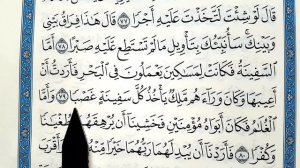 قَالَ لَوْ شِئْتَ لَتَّخَذْتَ عَلَيْهِ أَجْرًا ٧٧ قَالَ هَٰذَا فِرَاقُ بَيْنِى
وَبَيْنِكَ سَأُنَبِّئُكَ بِتَأْوِيلِ مَا لَمْ تَسْتَطِع عَّلَيْهِ صَبْرًا ٧٨ أَمَّا
ٱلسَّفِينَةُ فَكَانَتْ لِمَسَٰكِينَ يَعْمَلُونَ فِى ٱلْبَحْرِ فَأَرَدتُّ أَنْ
أَعِيبَهَا وَكَانَ وَرَآءَهُم مَّلِكٌ يَأْخُذُ كُلَّ سَفِينَةٍ غَصْبًا ٧٩ وَأَمَّا
ٱلْغُلَٰمُ فَكَانَ أَبَوَاهُ مُؤْمِنَيْنِ فَخَشِينَآ أَن يُرْهِقَهُمَا طُغْيَٰنًا
وَكُفْرًا ٨٠ فَأَرَدْنَآ أَن يُبْدِلَهُمَا رَبُّهُمَا خَيْرًا مِّنْهُ زَكَوٰةً وَأَقْرَبَ